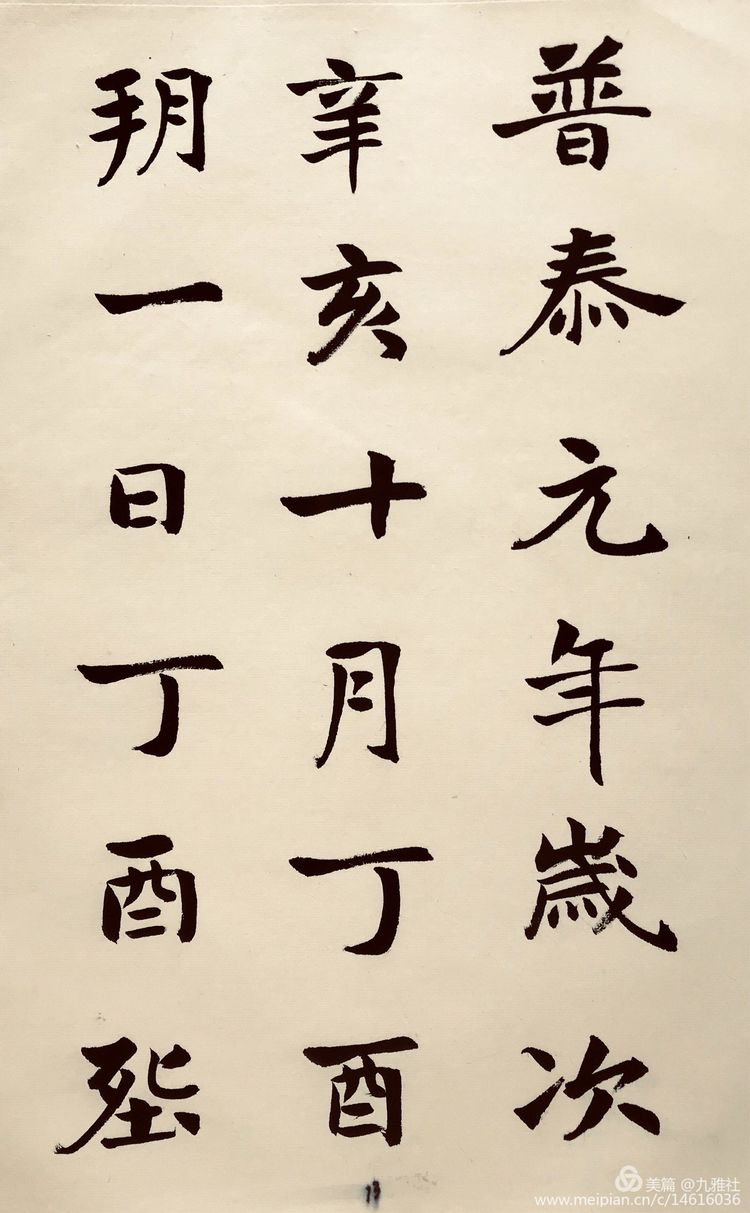 普泰元年歲次
辛亥十月丁酉
朔一日丁酉
13
美篇 @九雅社
www.meipian.cn/c/14616036